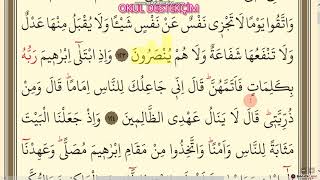 OKUL DESTEKÇİM
وَاتَّقُوا يَوْمًا لَا تَجْزِي نَفْسٌ عَنْ نَفْسٍ شَيْـًٔا وَلَا يُقْبَلُ مِنْهَا عَدْلٌ
وَلَا تَنْفَعُهَا شَفَاعَةٌ وَلَا هُمْ يُنْصَرُونَ ﴿١٢٣﴾ وَاِذِ ابْتَلٰٓى اِبْرٰهِيمَ رَبُّهُ
بِكَلِمَاتٍ فَاَتَمَّهُنَّ قَالَ اِنِّي جَاعِلُكَ لِلنَّاسِ اِمَامًا قَالَ وَمِنْ
ذُرِّيَّتِي قَالَ لَا يَنَالُ عَهْدِي الظَّالِمِينَ ﴿١٢٤﴾ وَاِذْ جَعَلْنَا الْبَيْتَ
مَثَابَةً لِلنَّاسِ وَاَمْنًا وَاتَّخِذُوا مِنْ مَقَامِ اِبْرٰهِيمَ مُصَلًّى وَعَهِدْنَٓا